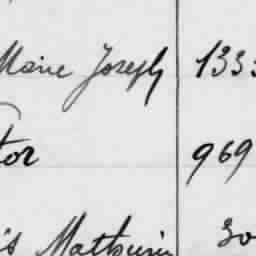 Marie Joseph 1333
tor 969
is Mathurin 30